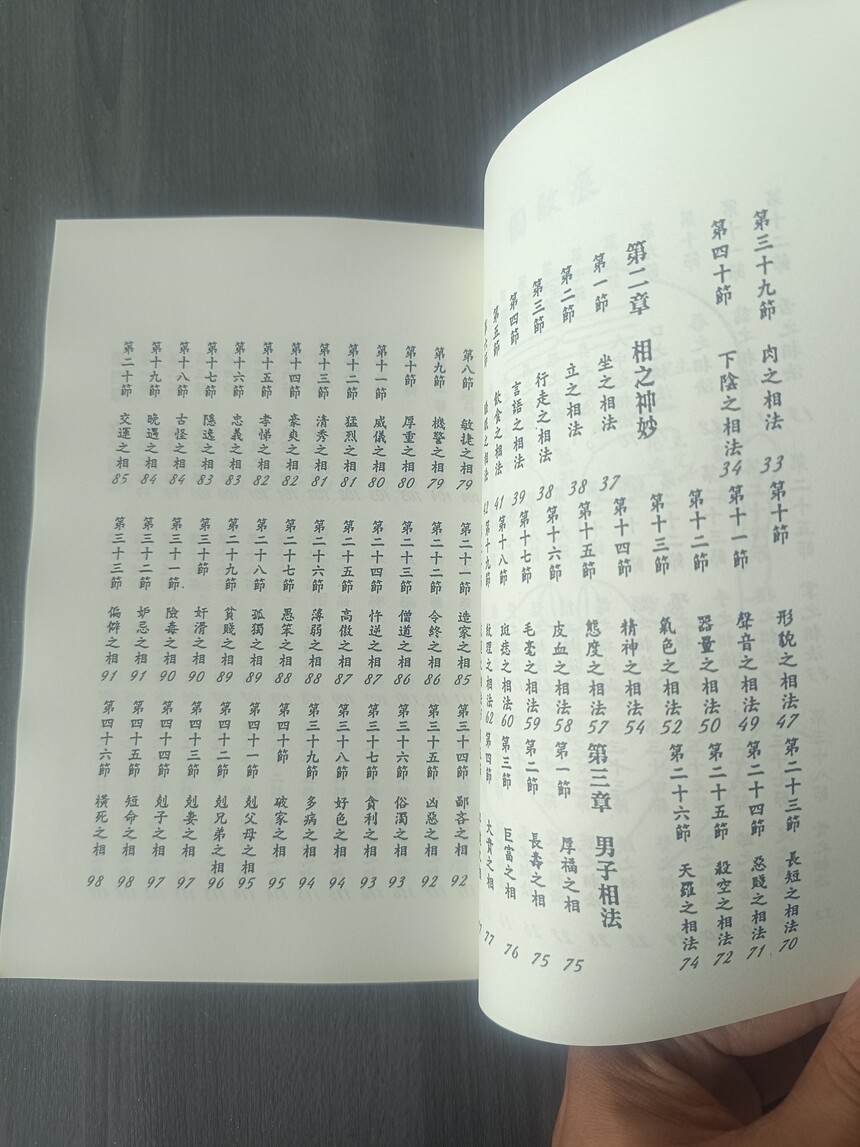 第三十九節 肉之相法 33
第四十節 下陰之相法 34
第二章 相之神妙
第一節 坐之相法 37
第二節 立之相法 38
第三節 行走之相法 38
第四節 言語之相法 39
第五節 飲食之相法 41
之相法 42
第十節 形貌之相法 47
第十一節 聲音之相法 49
第十二節 器量之相法 50
第十三節 氣色之相法 52
第十四節 精神之相法 54
第十五節 態度之相法 57
第十六節 皮血之相法 58
第十七節 毛毫之相法 59
第十八節 斑痣之相法 60
第十九節 紋理之相法 62
第二十三節 長短之相法 70
第二十四節 惡賤之相法 71
第二十五節 殺空之相法 72
第二十六節 天羅之相法 74
第三章 男子相法
第一節 厚福之相 75
第二節 長壽之相 75
第三節 巨富之相 76
第四節 大貴之相 77
第八節 敏捷之相 79
第九節 機警之相 79
第十節 厚重之相 80
第十一節 威儀之相 80
第十二節 猛烈之相 81
第十三節 清秀之相 81
第十四節 豪爽之相 82
第十五節 孝悌之相 82
第十六節 忠義之相 83
第十七節 隱逸之相 83
第十八節 古怪之相 84
第十九節 晚遇之相 84
第二十節 交運之相 85
第二十一節 造家之相 85
第二十二節 令終之相 86
第二十三節 僧道之相 86
第二十四節 忤逆之相 87
第二十五節 高傲之相 87
第二十六節 薄弱之相 88
第二十七節 愚笨之相 88
第二十八節 孤獨之相 89
第二十九節 貧賤之相 89
第三十節 奸滑之相 90
第三十一節 險毒之相 90
第三十二節 妒忌之相 91
第三十三節 偏僻之相 91
第三十四節 鄙吝之相 92
第三十五節 凶惡之相 92
第三十六節 俗濁之相 93
第三十七節 貪利之相 93
第三十八節 好色之相 94
第三十九節 多病之相 94
第四十節 破家之相 95
第四十一節 剋父母之相 95
第四十二節 剋兄弟之相 96
第四十三節 剋妻之相 97
第四十四節 剋子之相 97
第四十五節 短命之相 98
第四十六節 橫死之相 98